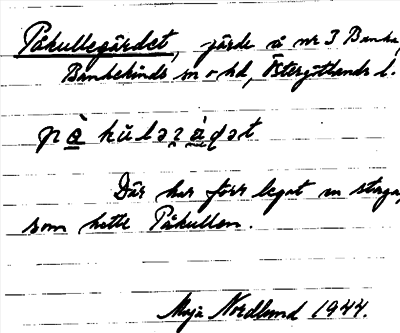 Påkullegärdet, gärde å nr 3 Banka,
Bankekinds sn o hd, Östergötlands l.
Där har förr legat en stuga,
som hette Påkullen.
Maja Nordlund 1944.